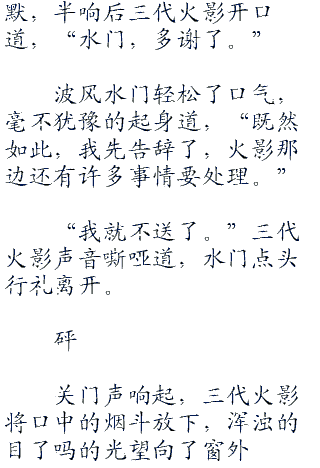 默，半响后三代火影开口
道，“水门，多谢了。”
波风水门轻松了口气，
毫不犹豫的起身道，“既然
如此，我先告辞了，火影那
边还有许多事情要处理。”
“我就不送了。”三代
火影声音嘶哑道，水门点头
行礼离开。
砰
关门声响起，三代火影
将口中的烟斗放下，浑浊的
目了吗的光望向了窗外